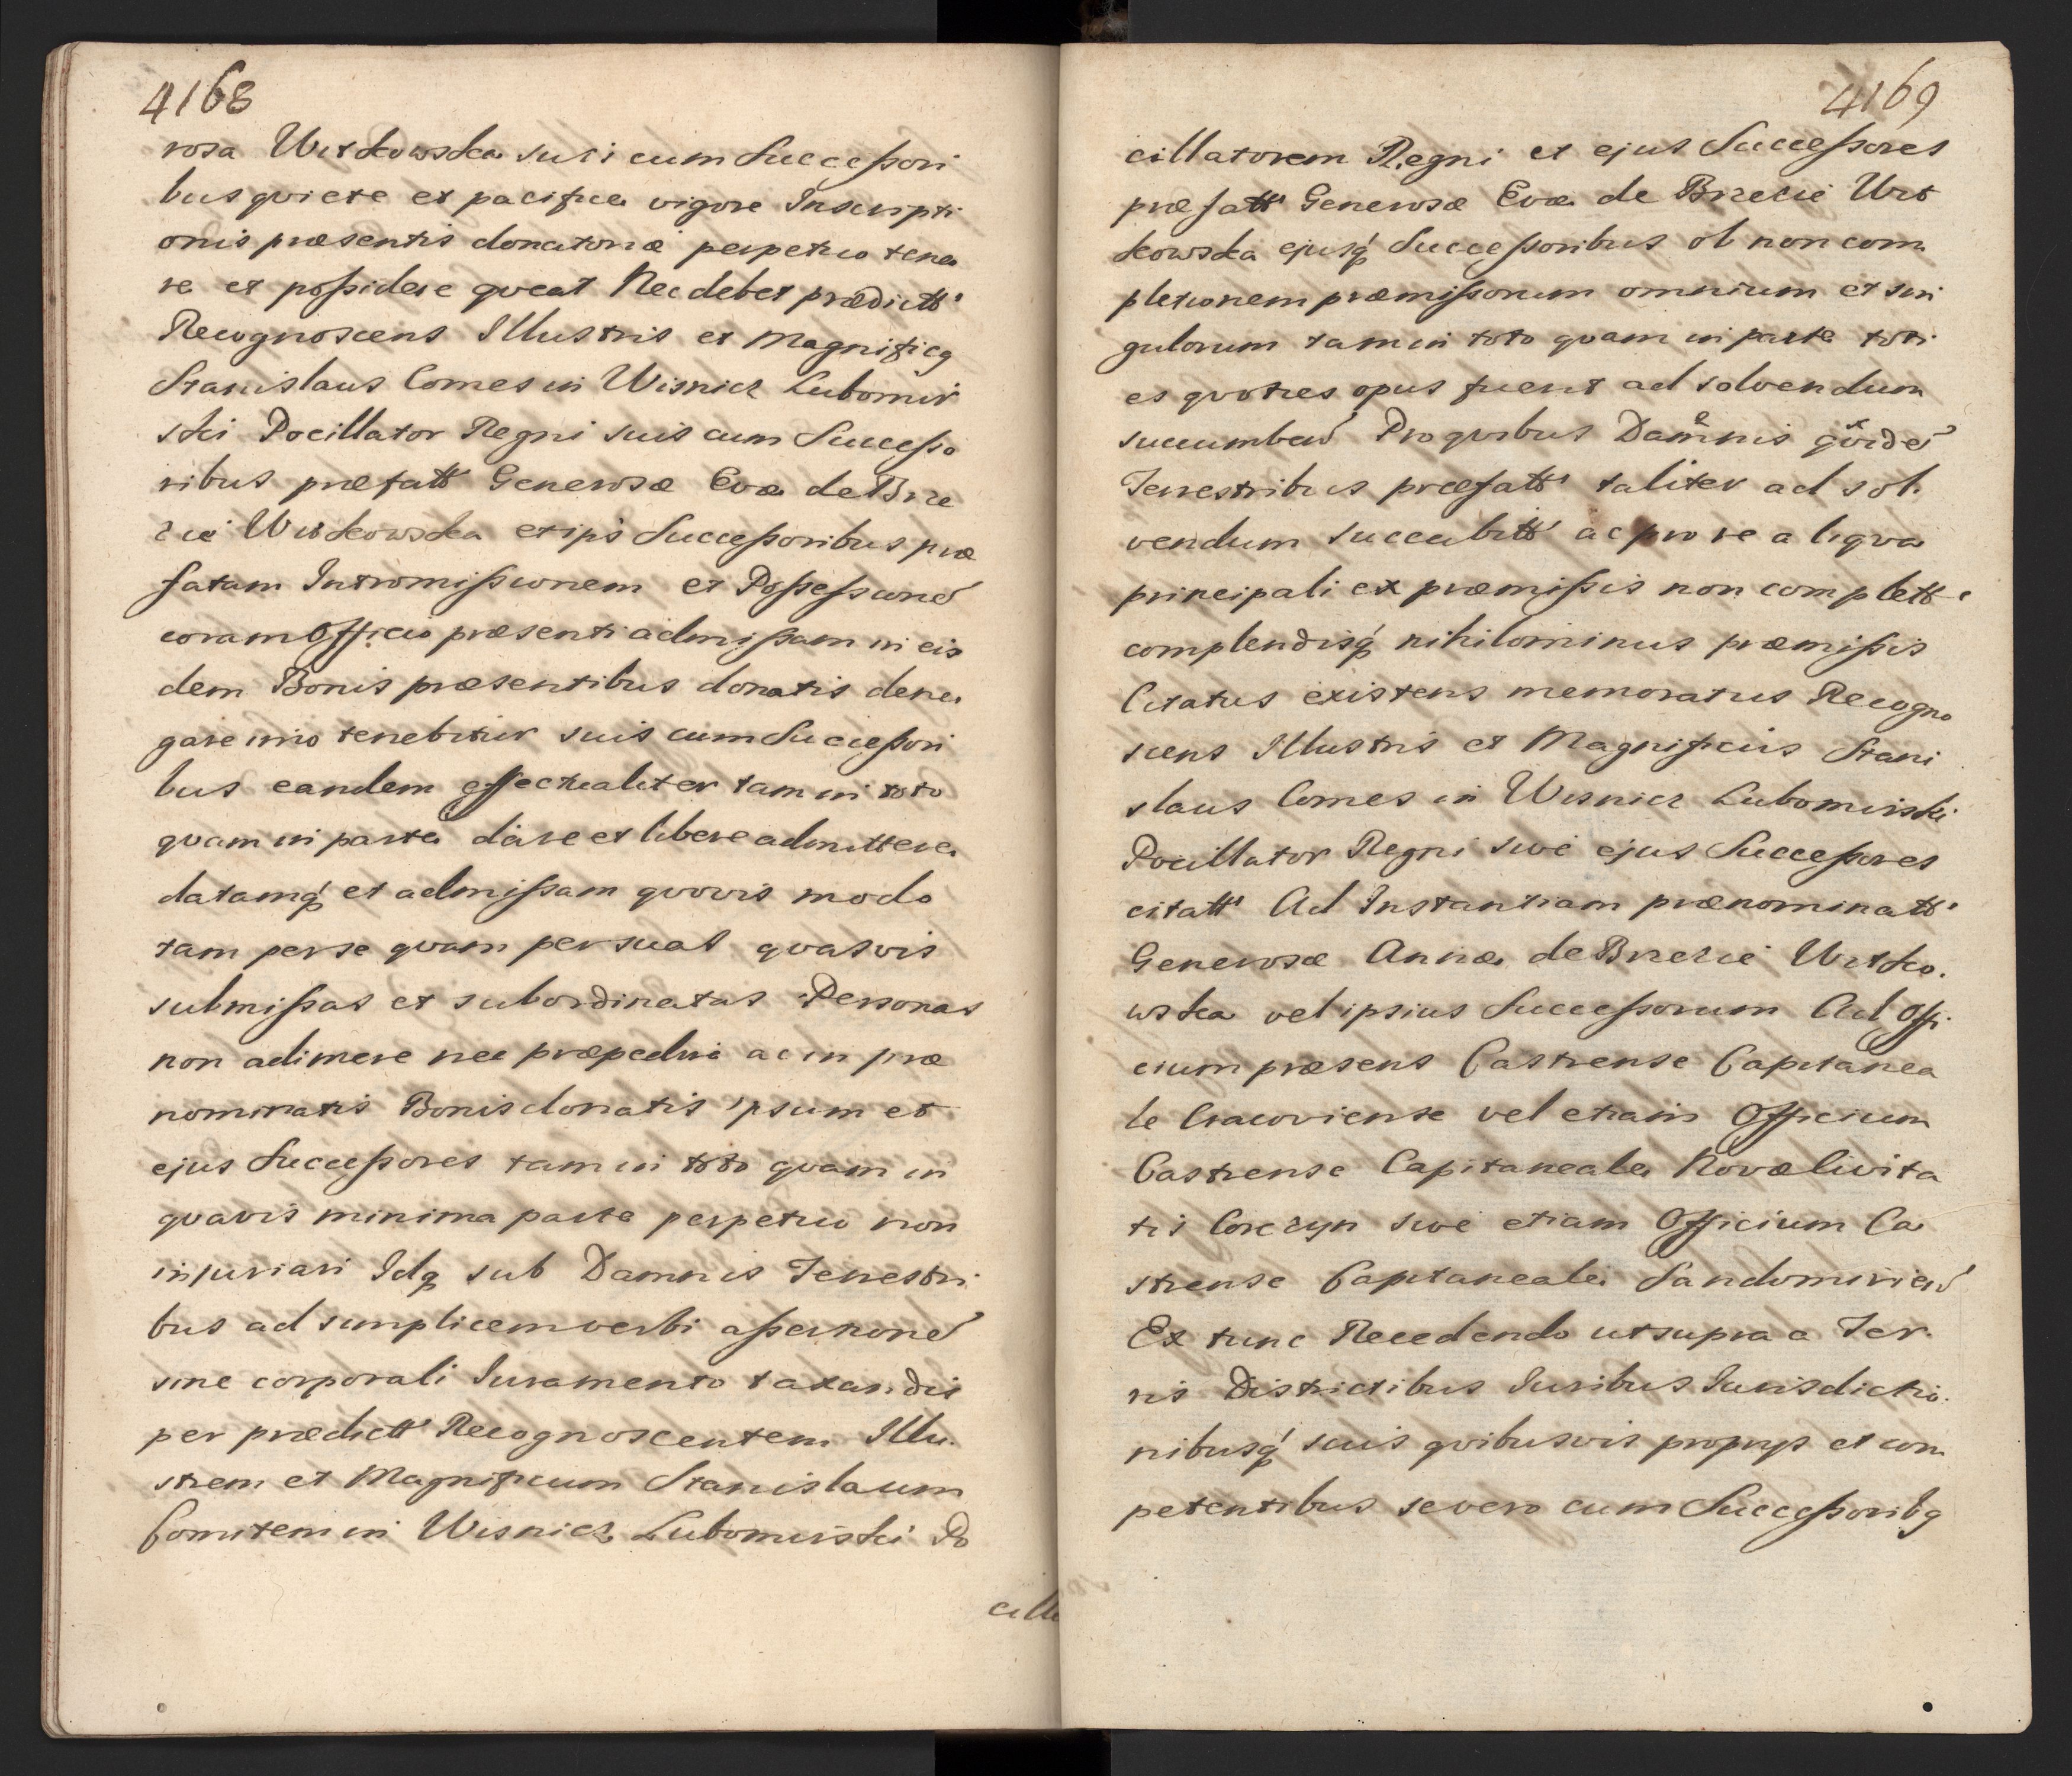 4168
rosa Witkowska suis cum Successori
bus quiete et pacifice vigore Inscripti
onis præsentis donatoriæ perpetuo tene
re et possidere queat Nec debet prædictt'
Recognoscens Illustris et Magnificg
Stanislaus Comes in Wisnicz Lubomir
ski Pocillator Regni suis cum Successo
ribus præfatt' Generosæ Evæ de Brze
zie Witkowska et ips Successoribus præ
fatam Intromissionem et Possessione
coram Officio præsenti admissam in eis
dem Bonis præsentibus donatis dene
gare imo tenebitur suis cum Successori
bus eandem effectualiter tam in toto
quam in parte dare et libere admittere
datamq et admissam quovis modo
tam per se quam per suas quasvis
submissas et subordinatas Personas
non adimere nec præpedire ac in præ
nominatis Bonis donatis ipsum et
ejus Successores tam in toto quam in
quavis minima parte perpetuo non
injuriari Idq sub Damnis Terrestri
bus ad simplicem verbi assertione
sine corporali Iuramento taxandis
per prædictt' Recognoscentem Illu
strem et Magnificum Stanislaum
Comitem in Wisnicz Lubomirski Po
cilla
4169
cillatorem Regni et ejus Successores
præfatt' Generosæ Evæ de Brzezie Wit
kowska ejusq Successoribus ob non com
pletionem præmissorum omnium et sin
gulorum tam in toto quam in parte toti
es quoties opus fuerit ad solvendum
succumben Pro quibus Damnis quide
Terrestribus præfatt' taliter ad sol
vendum succubitt' ac pro re aliqua
principali ex præmissis non complett'
complendisq nihilominus præmissis
Citatus existens memoratus Recogno
scens Illustris et Magnificus Stani
slaus Comes in Wisnicz Lubomirski
Pocillator Regni sive ejus Successores
citatt' Ad Instantiam prænominatt'
Generosæ Annæ de Brzezie Witko
wska vel ipsius Successorum Ad Offi
cium præsens Castrense Capitanea
le Cracoviense vel etiam Officium
Castrense Capitaneale Novæ Civita
tis Corczyn sive etiam Officium Ca
strense Capitaneale Sandomirien
Ex tunc Recedendo ut supra a Ter
ris Districtibus Iuribus Iurisdictio
nibusq suis quibusvis proprys et com
petentibus se vero cum Successoribg